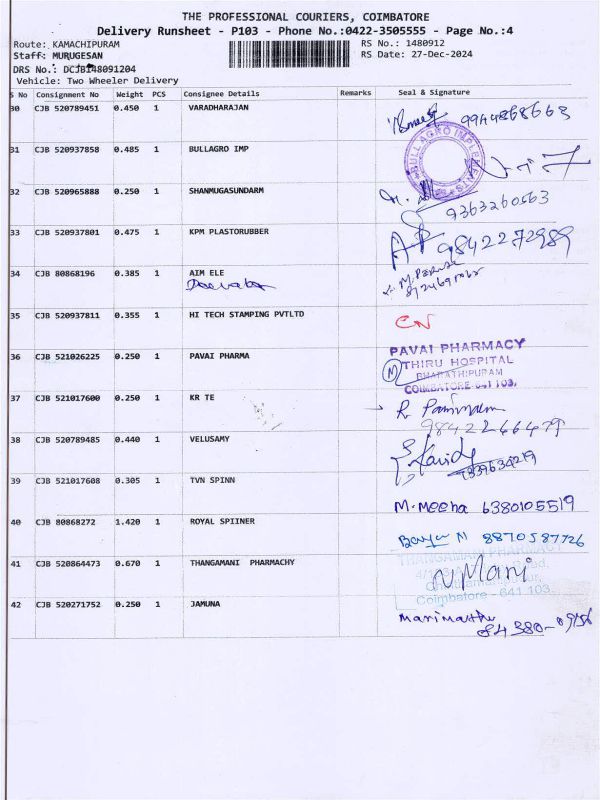 THE PROFESSIONAL COURIERS, COIMBATORE
Delivery Runsheet - P103 - Phone No.:0422-3505555 - Page No.:4
Route: KAMACHIPURAM RS No.: 1480912
Staff: MURUGESAN RS Date: 27-Dec-2024
DRS No.: DCJB148091204
Vehicle: Two Wheeler Delivery
S No Consignment No Weight PCS Consignee Details Remarks Seal & Signature
30 CJB 520789451 0.450 1 VARADHARAJAN
31 CJB 520937858 0.485 1 BULLAGRO IMP
32 CJB 520965888 0.250 1 SHANMUGASUNDARM
9363260563
33 CJB 520937801 0.475 1 KPM PLASTORUBBER
9842272989
34 CJB 80868196 0.385 1 AIM ELE
35 CJB 520937811 0.355 1 HI TECH STAMPING PVTLTD
CN
36 CJB 521026225 0.250 1 PAVAI PHARMA PAVAI PHARMACY
THIRU HOSPITAL
BHARATHIPURAM
COIMBATORE-641 103.
37 CJB 521017600 0.250 1 KR TE
38 CJB 520789485 0.440 1 VELUSAMY
39 CJB 521017608 0.305 1 TVN SPINN
M. Meena 6380105519
40 CJB 80868272 1.420 1 ROYAL SPIINER
8870587726
41 CJB 520864473 0.670 1 THANGAMANI PHARMACHY THANGAMANI PHARMACY
N Mani
Coimbatore - 641 103.
42 CJB 520271752 0.250 1 JAMUNA